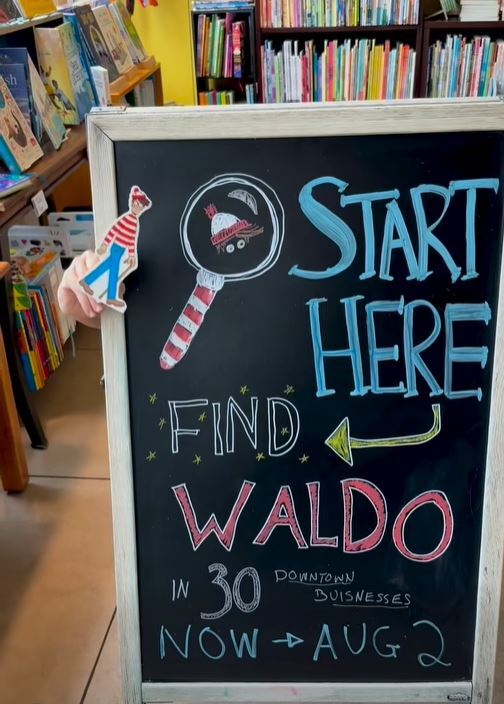 START
HERE
FIND
WALDO
IN 30 DOWNTOWN
BUISNESSES
NOW → AUG 2